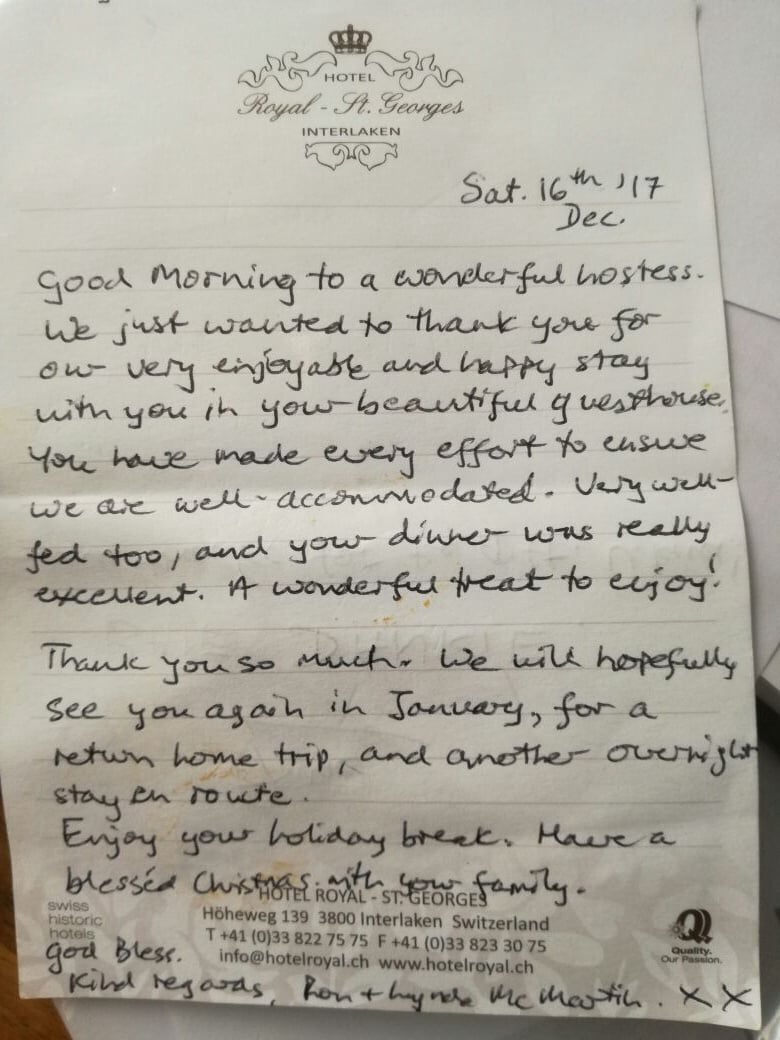 HOTEL
Royal - St. Georges
INTERLAKEN
Sat. 16th '17
Dec.
Good Morning to a wonderful hostess.
We just wanted to thank you for
our very enjoyable and happy stay
with you in your beautiful guesthouse.
You have made every effort to ensure
we are well-accommodated. Very well-
fed too, and your dinner was really
excellent. A wonderful treat to enjoy!
Thank you so much. We will hopefully
see you again in January, for a
return home trip, and another overnight
stay en route.
Enjoy your holiday break. Have a
blesséd Christmas with your family.
HOTEL ROYAL - ST. GEORGES
swiss
historic
hotels
Höheweg 139 3800 Interlaken Switzerland
T +41 (0)33 822 75 75 F +41 (0)33 823 30 75
info@hotelroyal.ch www.hotelroyal.ch
Q
Quality.
Our Passion.
God Bless.
Kind regards, Ron + Lynda McMartin. X X